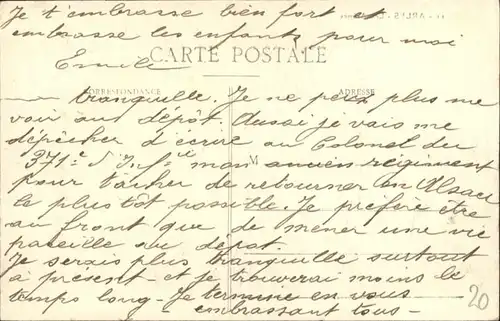 Je t'embrasse bien fort et
embrasse les enfants pour moi
Emile
CARTE POSTALE
CORRESPONDANCE
ADRESSE
tranquille. Je ne peux plus me
voir au dépôt. Aussi je vais me
dépêcher d'écrire au Colonel du
371e d'Inf.ie mon ancien régiment
M
pour tâcher de retourner en Alsace
le plus tôt possible. Je préfère être
au front que de mener une vie
pareille au dépôt.
Je serais plus tranquille surtout
à présent - et je trouverai moins le
temps long - Je termine en vous
embrassant tous -
20